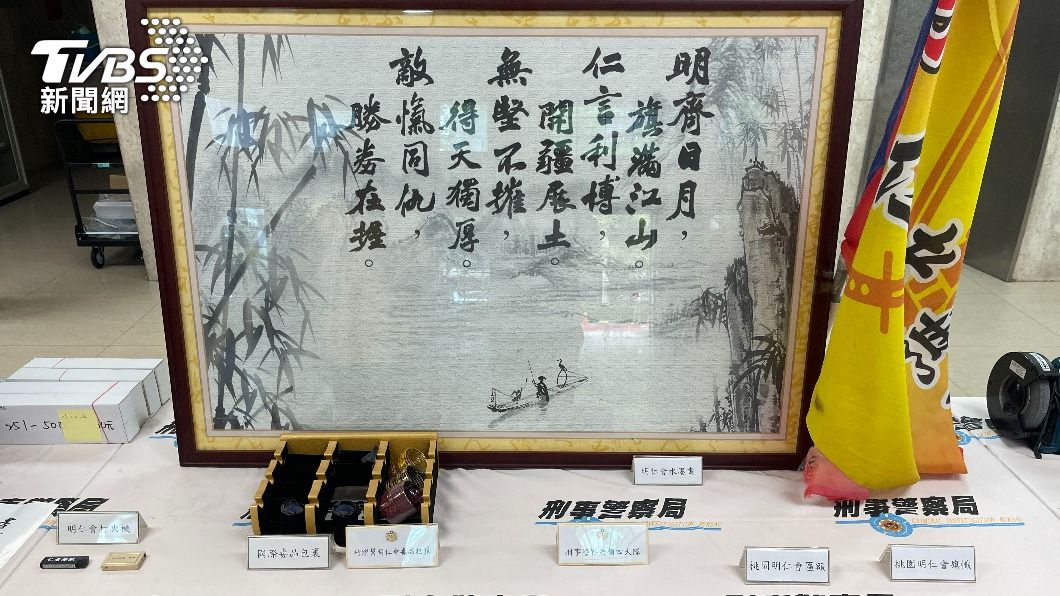 TVBS
新聞網
明齊日月，
旗滿江山。
仁言利博，
開疆展土。
無堅不摧，
得天獨厚。
敵愾同仇，
勝券在握。
明仁會水墨畫
刑事警察局
INVESTIGATION BUREAU
刑事警察局
CRIMINAL INVESTIGATION BUREAU
明仁會打火機
國際毒品包裹
桃園明仁會匾額
桃園明仁會旗幟